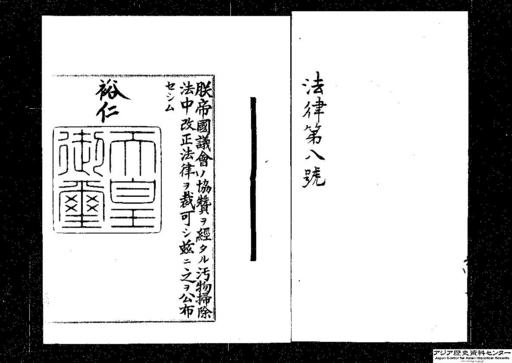 法律第八號
朕帝國議會ノ協贊ヲ經タル汚物掃除
法中改正法律ヲ裁可シ玆ニ之ヲ公布
セシム
裕仁
天皇
御璽
アジア歴史資料センター
Japan Center for Asian Historical Records